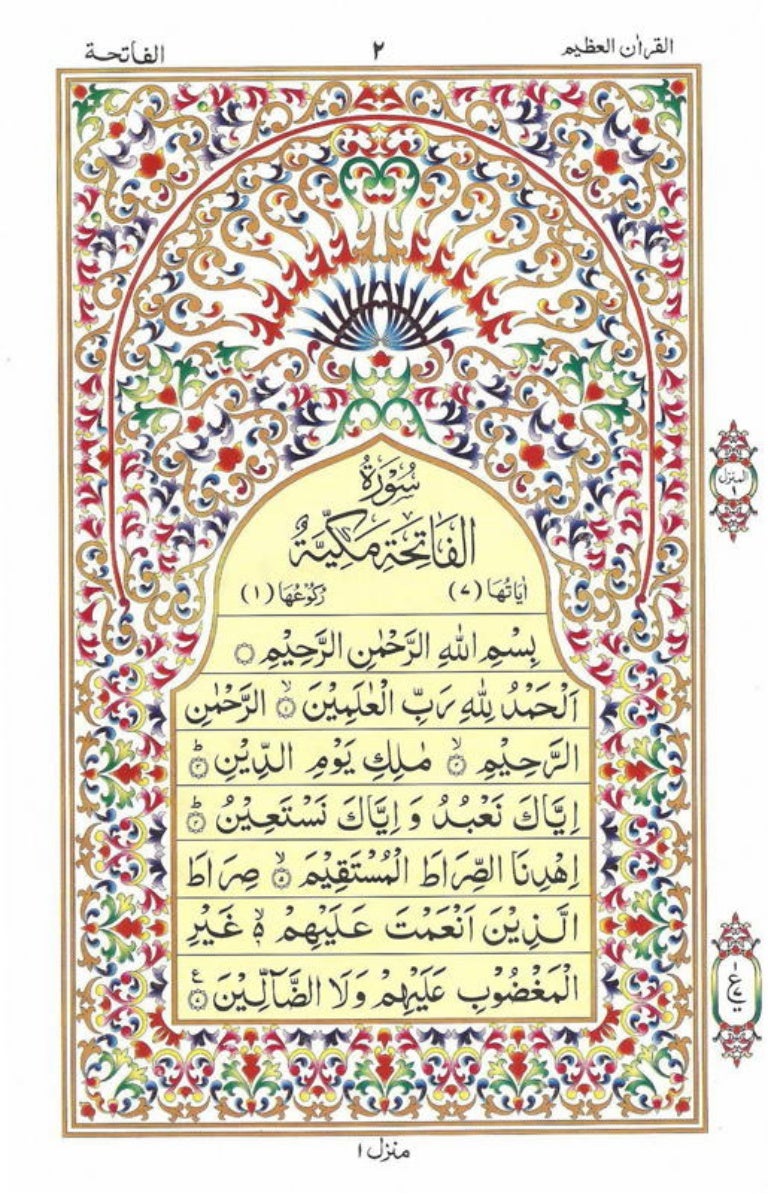 القرآن العظيم
٢
الفاتحة
سُوْرَةُ
الْفَاتِحَةِ مَكِّيَّةٌ
اٰيَاتُهَا (٧)
رُكُوْعُهَا (١)
بِسْمِ اللّٰهِ الرَّحْمٰنِ الرَّحِيْمِ ۝
اَلْحَمْدُ لِلّٰهِ رَبِّ الْعٰلَمِيْنَ ۙ﴿١﴾ الرَّحْمٰنِ
الرَّحِيْمِ ۙ﴿٢﴾ مٰلِكِ يَوْمِ الدِّيْنِ ؕ﴿٣﴾
اِيَّاكَ نَعْبُدُ وَ اِيَّاكَ نَسْتَعِيْنُ ؕ﴿٤﴾
اِهْدِنَا الصِّرَاطَ الْمُسْتَقِيْمَ ۙ﴿٥﴾ صِرَاطَ
الَّذِيْنَ اَنْعَمْتَ عَلَيْهِمْ ۙ۬ غَيْرِ
الْمَغْضُوْبِ عَلَيْهِمْ وَلَا الضَّآلِّيْنَ ﴿٧﴾ ع
المنزل
١
١
ع
٧
منزل ١